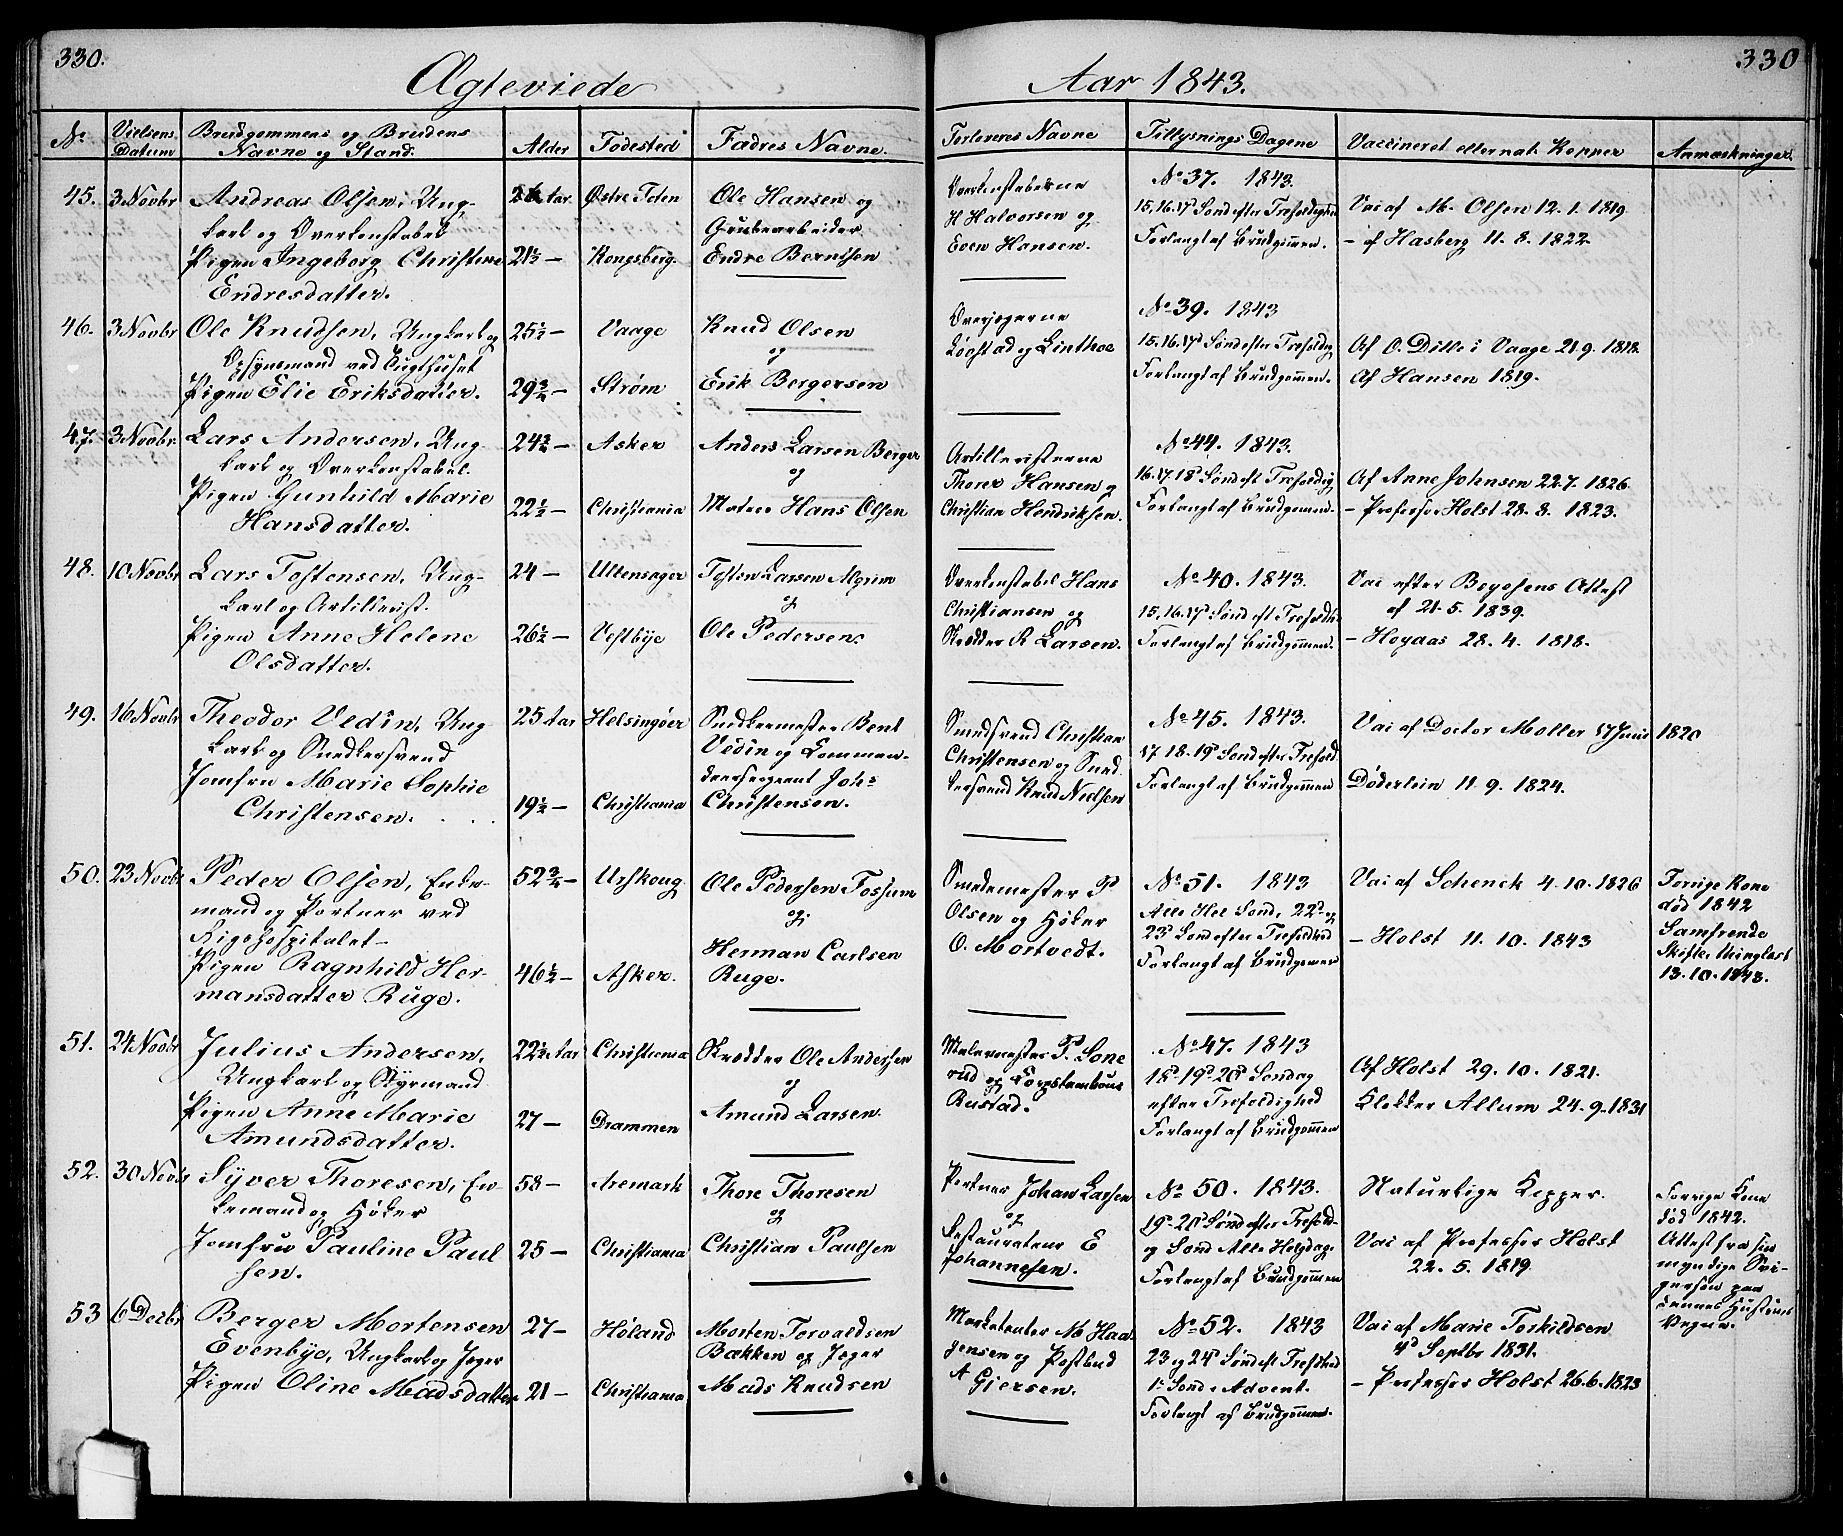 330.
Ægteviede
Aar 1843.
330
No
Vielsens Datum
Brudgommens og Brudens Navne og Stand.
Alder
Fødested
Fædres Navne.
Forloveres Navne
Tillysnings Dagene
Vaccineret eller nat. Kopper
Anmærkninger.
45. 3 Novbr Andreas Olsen, Ung-
karl og Overkonstabel
Pigen Ingeborg Christine
Endresdatter.
Aar
21½ —
Østre Toten
Kongsberg.
Ole Hansen og
Endre Berntsen
Overkonstablerne
H Halvorsen og
Even Hansen.
No 37. 1843.
15, 16. 17d Sønd efter Trefoldighed
Forlangt af Brudgommen.
Vac af M. Olsen 12. 1. 1819
– af Hasberg 11. 8. 1822.
46. 3 Novbr Ole Knudsen, Ungkarl og
Opsynsmand ved Tugthuset
Pigen Elie Eriksdatter.
25½ —
29¾ —
Vaage
Strøm
Knud Olsen
og
Erik Bergersen
Overjægerne
Løvstad og Linthoe
No 39. 1843
15, 16. 17d Sønd efter Trefoldig
Forlangt af Brudgommen.
Af O. Ditle i Vaage 21. 9. 1818.
Af Hansen 1819.
47. 3 Novbr. Lars Andersen, Ung-
karl og Overkonstabel.
Pigen Gunhild Marie
Hansdatter.
24¾ —
22½ —
Asker
Christiania
Anders Larsen Berger
og
Matros Hans Olsen
Artilleristerne
Thorer Hansen og
Christian Hendriksen.
No 44. 1843.
16. 17. 18d Sønd eft Trefoldig
Forlangt af Brudgommen.
Af Anne Johnsen 22. 7. 1826.
– Professor Holst 28. 8. 1823.
48. 10 Novbr Lars Tostensen, Ung-
karl og Artillerist.
Pigen Anne Helene
Olsdatter.
24 —
26½ —
Ullensager
Vestbye
Tosten Larsen Algrim
og
Ole Pedersen.
Overkonstabel Hans
Christiansen og
Skrædder R Larsen.
No 40. 1843.
15, 16. 17d Sønd eft Trefoldh.
Forlangt af Brudgommen.
Vac efter Boyesens Attest
af 21. 5. 1839.
– Hoyaas 28. 4. 1818.
49. 16 Novbr Theodor Vedin, Ung-
karl og Snedkersvend
Jomfru Marie Sophie
Christensen.
25 Aar
19½ —
Helsingøer
Christiania
Snedkermester Bent
Vedin og Comman-
deersergeant Johs
Christensen.
Smedsvend Christian
Christensen og Sned
kersvend Knud Nielsen
No 45. 1843.
17 18. 19d Sønd efter Trefold
Forlangt af Brudgommen
Vac af Doctor Møller 17 Juni 1820
Døderlein 11. 9. 1824.
50. 23 Novbr Peder Olsen, Enke-
mand og Portner ved
Rigshospitalet –
Pigen Ragnhild Her-
mansdatter Ruge.
52¾ —
46½ —
Urskoug
Asker.
Ole Pedersen Fossum
og
Herman Carlsen
Ruge.
Smedemester P
Olsen og Høker
O. Mortvedt.
No 51. 1843
Alle Hel Sønd, 22d og
23d Sønd efter Trefoldhed
Forlangt af Brudgommen
Vac af Schenck 4. 10. 1826
– Holst 11. 10. 1843
Forrige Kone
død 1842
Samfrende
Skifte thinglæst
13. 10. 1843.
51. 24 Novbr Julius Andersen,
Ungkarl og Styrmand
Pigen Anne Marie
Amundsdatter.
22½ Aar
27 —
Christiania
Drammen
Skrædder Ole Andersen
og
Amund Larsen.
Malermester P. Sone
rud og Corpstambour
Rustad.
No 47. 1843
18d 19d 20d Søndag
efter Trefoldighed
Forlangt af Brudgommen
Af Holst 29. 10. 1821.
Klokker Allum 24. 9. 1831
52. 30 Novbr Syver Thoresen, En-
kemand og Høker
Jomfru Pauline Paul
sen.
58 —
25 —
Aremark
Christiania
Thore Thoresen
og
Christian Paulsen
Portner Johan Larsen
og
Restaurateur E
Johannesen.
No 50. 1843.
19d 20d Sønd efter Trefold-
og Sønd Alle Helgdag.
Forlangt af Brudgommen
Naturlige Kopper.
Vac af Professor Holst
22. 5. 1819.
Forrige Kone
død 1842.
Attest fra sin
myndige Svi-
gersøn paa
hannes Hustrues
Vegne.
53 6 Decbr Berger Mortensen
Evenbye, Ungkarl og Jæger
Pigen Oline Madsdatter
27 —
21 —
Høland
Christiania
Morten Torvaldsen
Bækken og Jæger
Mads Knudsen
Marketenter M Haa
gensen og Postbud
A Giersen.
No 52. 1843
23 og 24d Sønd eft Trefdhed
1. Sønd i Advent.
Forlangt af Brudgommen.
Vac af Marie Torkildsen
4d Septbr 1831.
– Professor Holst 26. 6. 1823